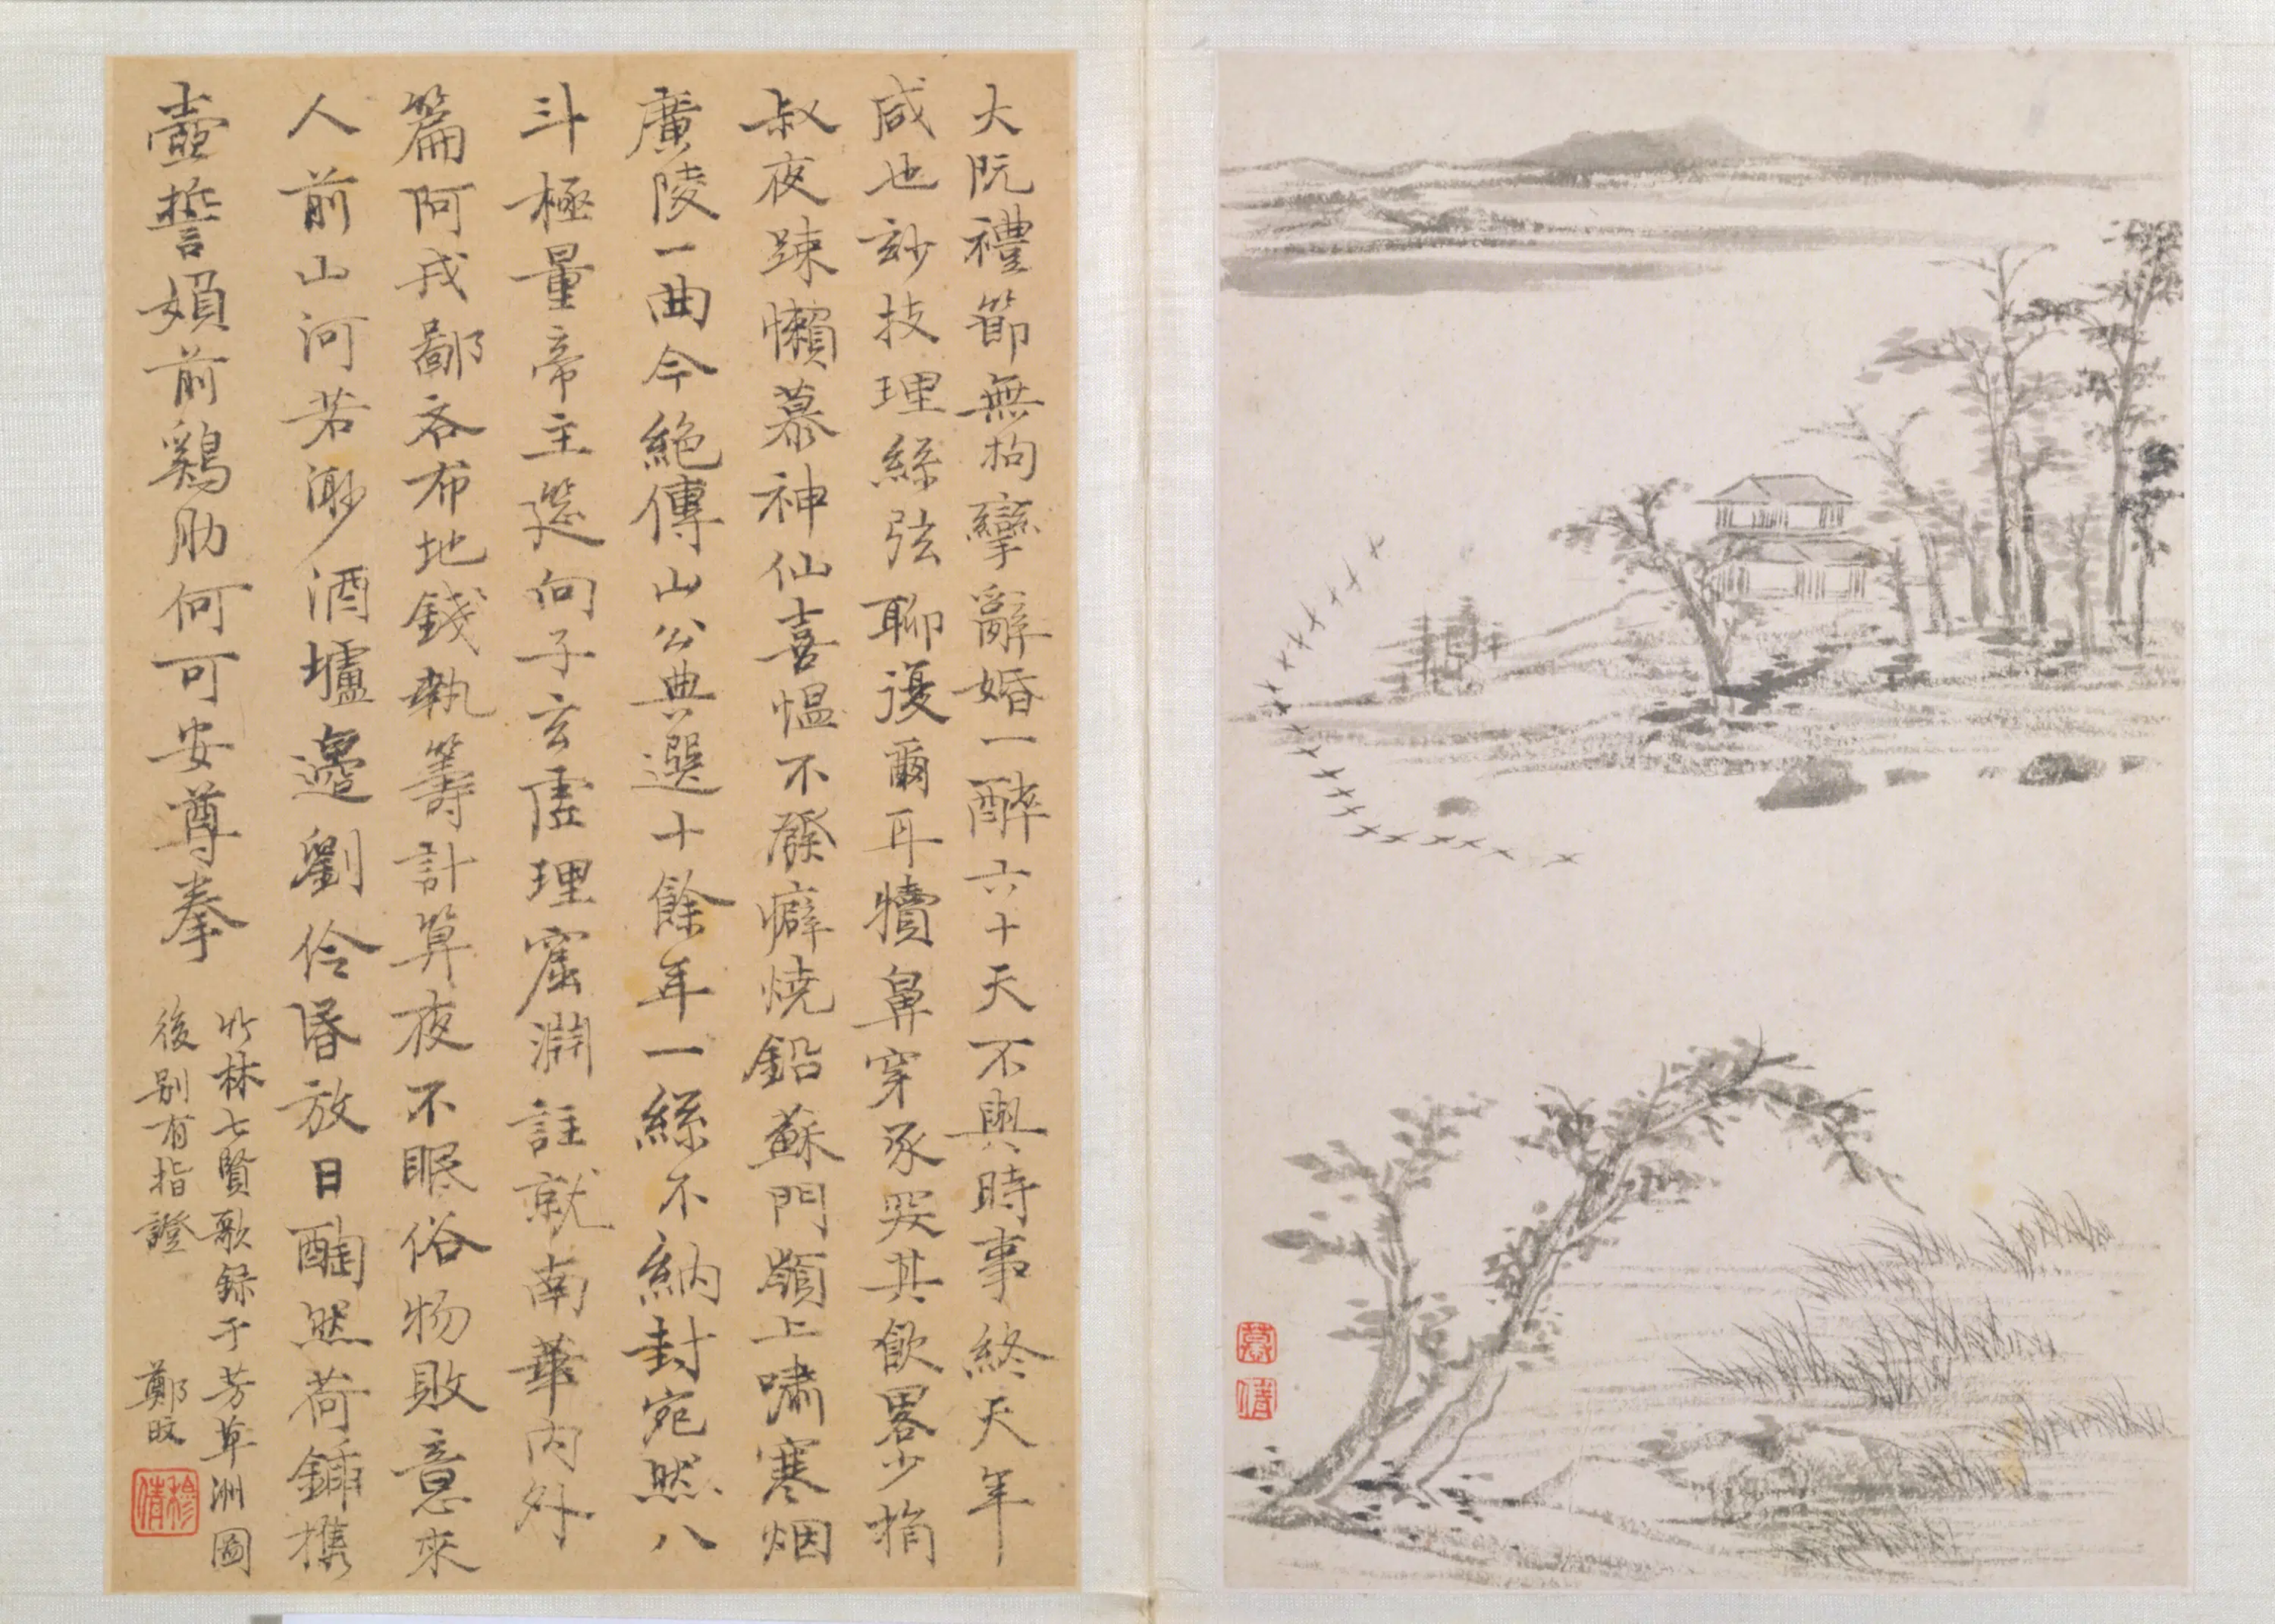 大阮禮節無拘攣辭婚一醉六十天不與時事終天年
咸也妙技理絲弦聊復爾耳犢鼻穿豕哭其飲畧少捐
叔夜踈懶慕神仙喜慍不發癖燒鉛蘇門巔上嘯寒烟
廣陵一曲今絕傳山公典選十餘年一絲不納封宛然八
斗極量帝主筵向子玄虛理窟淵註就南華內外
篇阿戎鄙吝布地錢執籌計算夜不眠俗物敗意來
人前山河若渺酒壚邊劉伶昏放日酣然荷鍤攜
壺誓婦前雞肋何可安尊拳
竹林七賢歌錄于芳草洲圖
後別有指證
鄭旼
穆倩
慕倩